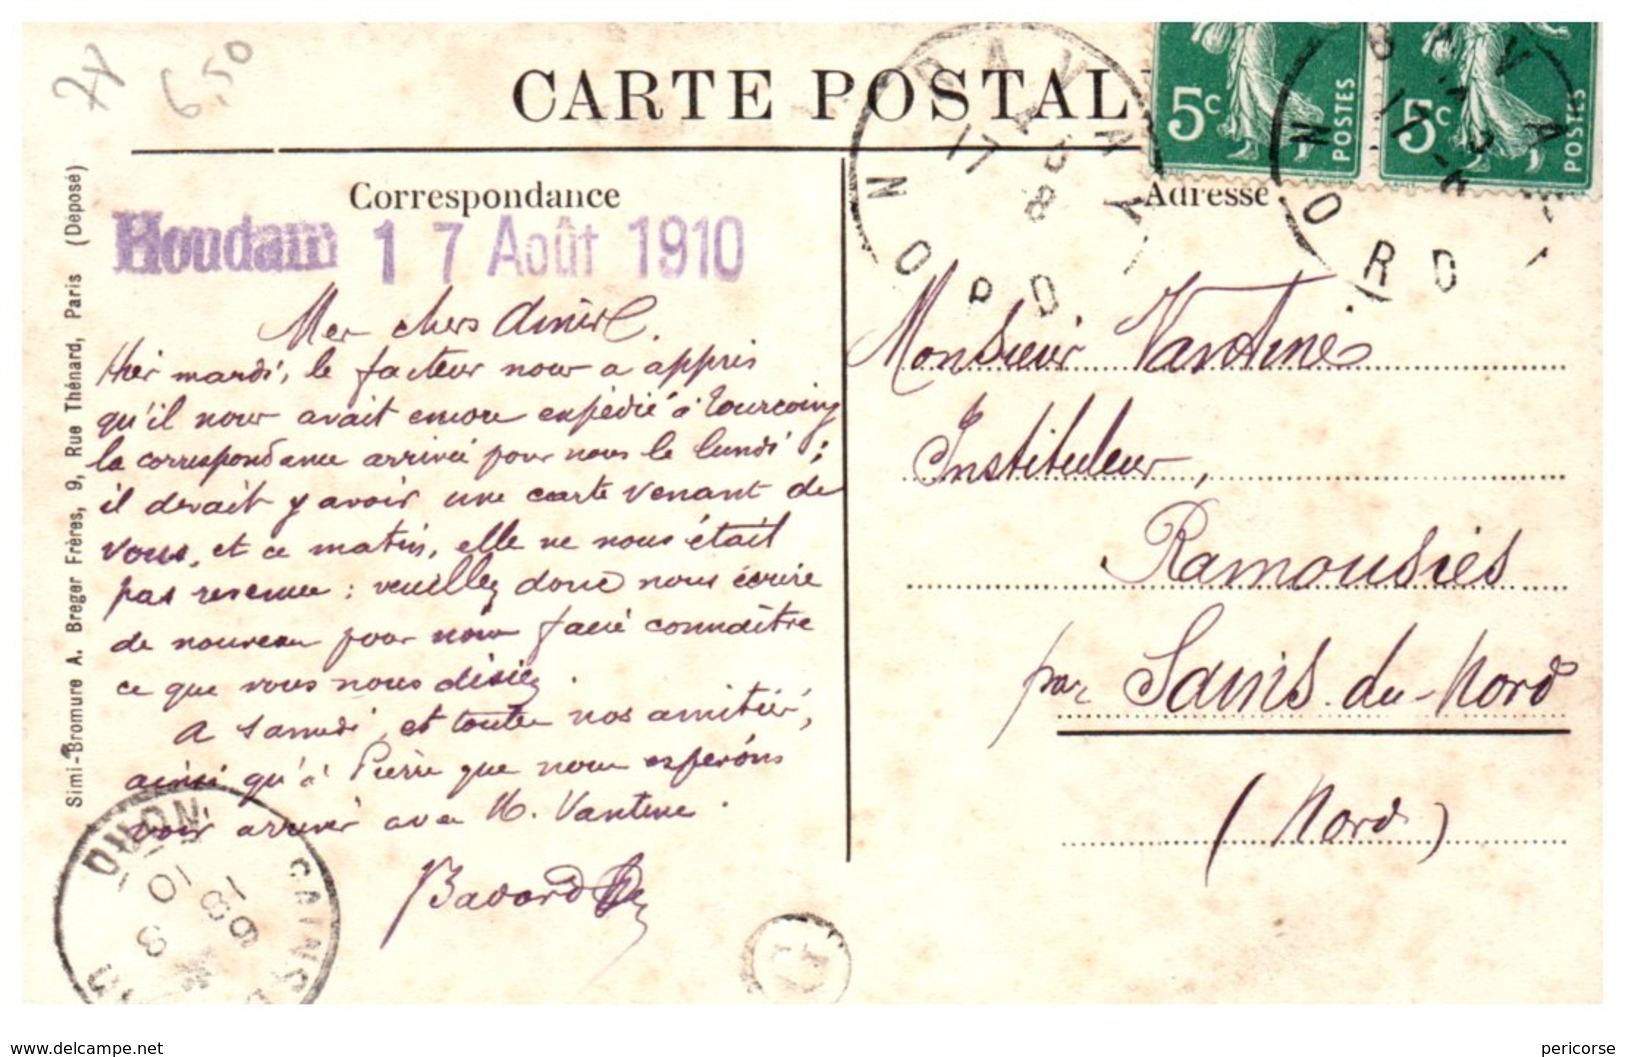 6,50
CARTE POSTAL
5c POSTES
5c POSTES
BAVAY
17
8
NORD
BAVA
17
NORD
Correspondance
Adresse
Houdain 17 Août 1910
Mes chers Amis.
Hier mardi, le facteur nous a appris
qu'il nous avait encore expédié à Tourcoing
la correspondance arrivée pour nous le lundi ;
il devait y avoir une carte venant de
vous, et ce matin, elle ne nous était
pas revenue : veuillez donc nous écrire
de nouveau pour nous faire connaître
ce que vous nous disiez.
A samedi, et toutes nos amitiés,
ainsi qu'à Pierre que nous espérons
voir arriver avec M. Vantine.
Monsieur Vantine
Instituteur,
Ramousies
par Sains-du-Nord
(Nord)
Simi-Bromure A. Breger Frères, 9, Rue Thénard, Paris (Déposé)
SAINS DU NORD
18 8
10
www.delcampe.net
pericorse